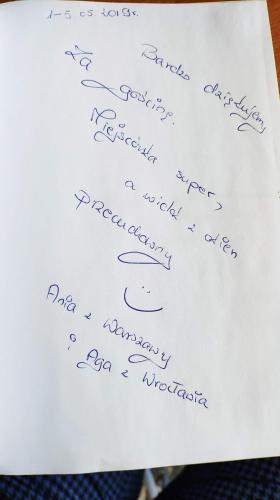 1-5 05 2019r.
Bardzo dziękujemy
Za gościnę.
Miejscówka super,
a widok z okien
przecudowny
:)
Ania z Warszawy
i Aga z Wrocławia